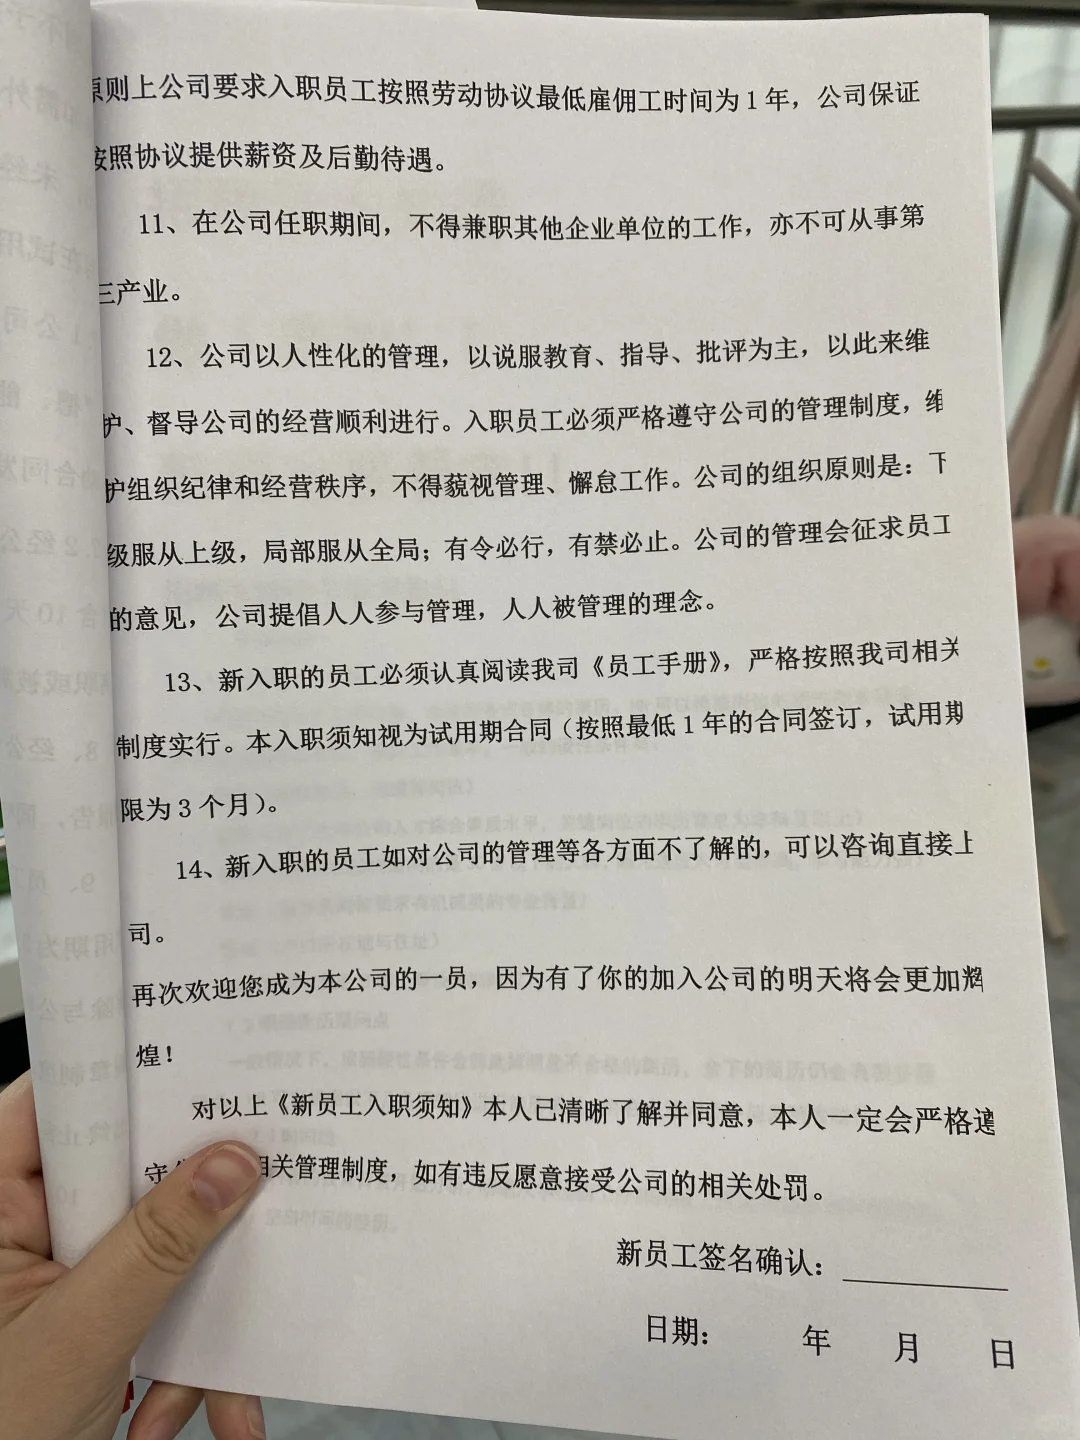 原则上公司要求入职员工按照劳动协议最低雇佣工时间为1年，公司保证
按照协议提供薪资及后勤待遇。
11、在公司任职期间，不得兼职其他企业单位的工作，亦不可从事第
三产业。
12、公司以人性化的管理，以说服教育、指导、批评为主，以此来维
护、督导公司的经营顺利进行。入职员工必须严格遵守公司的管理制度，维
护组织纪律和经营秩序，不得藐视管理、懈怠工作。公司的组织原则是：下
级服从上级，局部服从全局；有令必行，有禁必止。公司的管理会征求员工
的意见，公司提倡人人参与管理，人人被管理的理念。
13、新入职的员工必须认真阅读我司《员工手册》，严格按照我司相关
制度实行。本入职须知视为试用期合同（按照最低1年的合同签订，试用期
限为3个月）。
14、新入职的员工如对公司的管理等各方面不了解的，可以咨询直接上
司。
再次欢迎您成为本公司的一员，因为有了你的加入公司的明天将会更加辉
煌！
对以上《新员工入职须知》本人已清晰了解并同意，本人一定会严格遵
守 相关管理制度，如有违反愿意接受公司的相关处罚。
新员工签名确认：
日期： 年 月 日